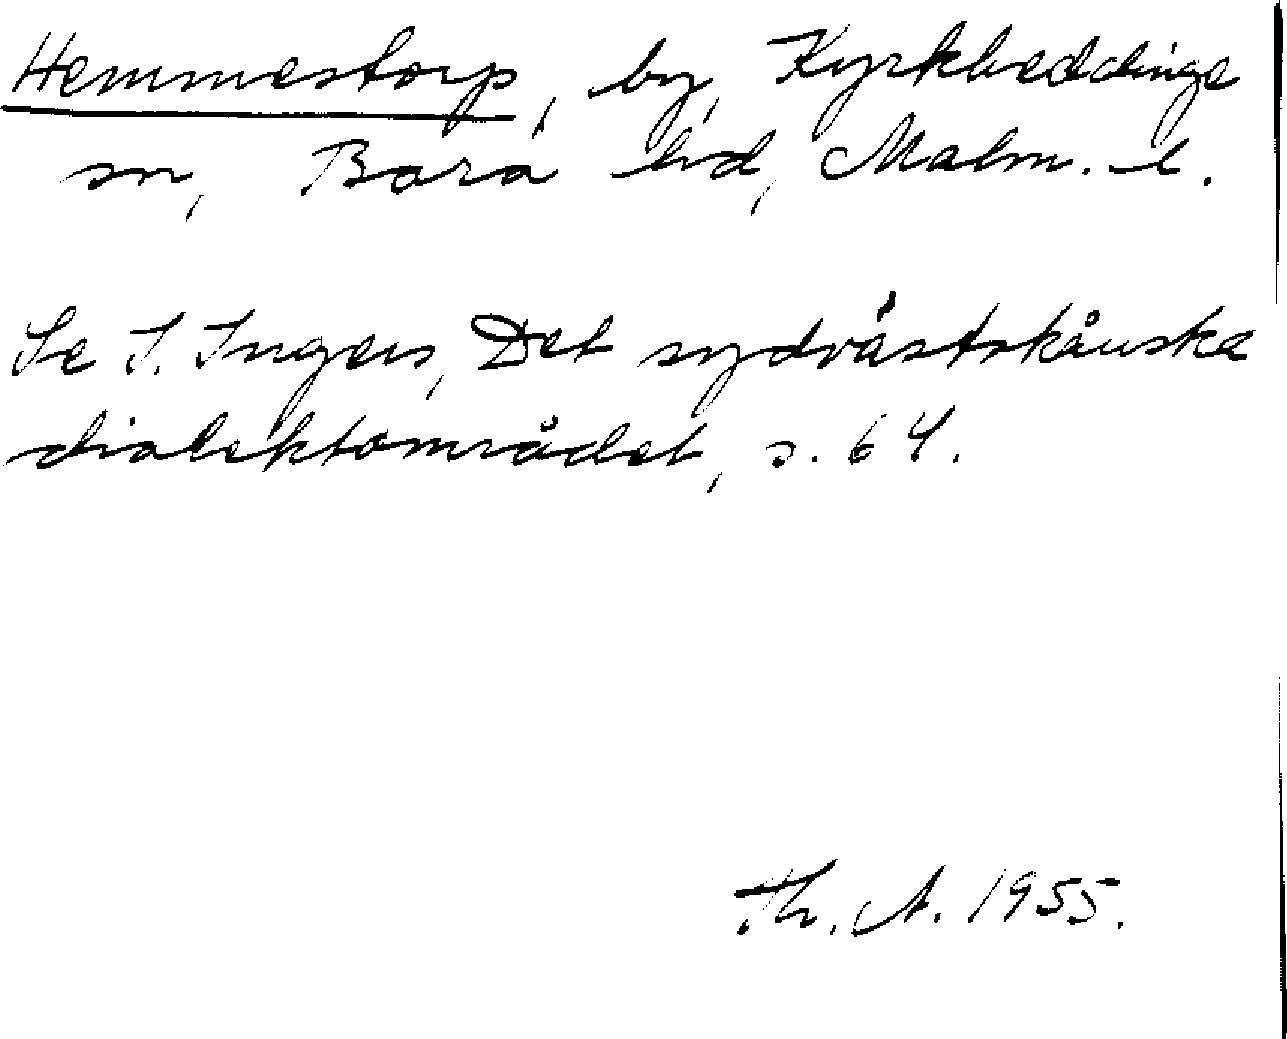 Hemmestorp, by, Kyrkheddinge
sn, Bara hd, Malm. l.
Se I. Ingers, Det sydvästskånska
dialektområdet, s. 64.
Th. A. 1955.